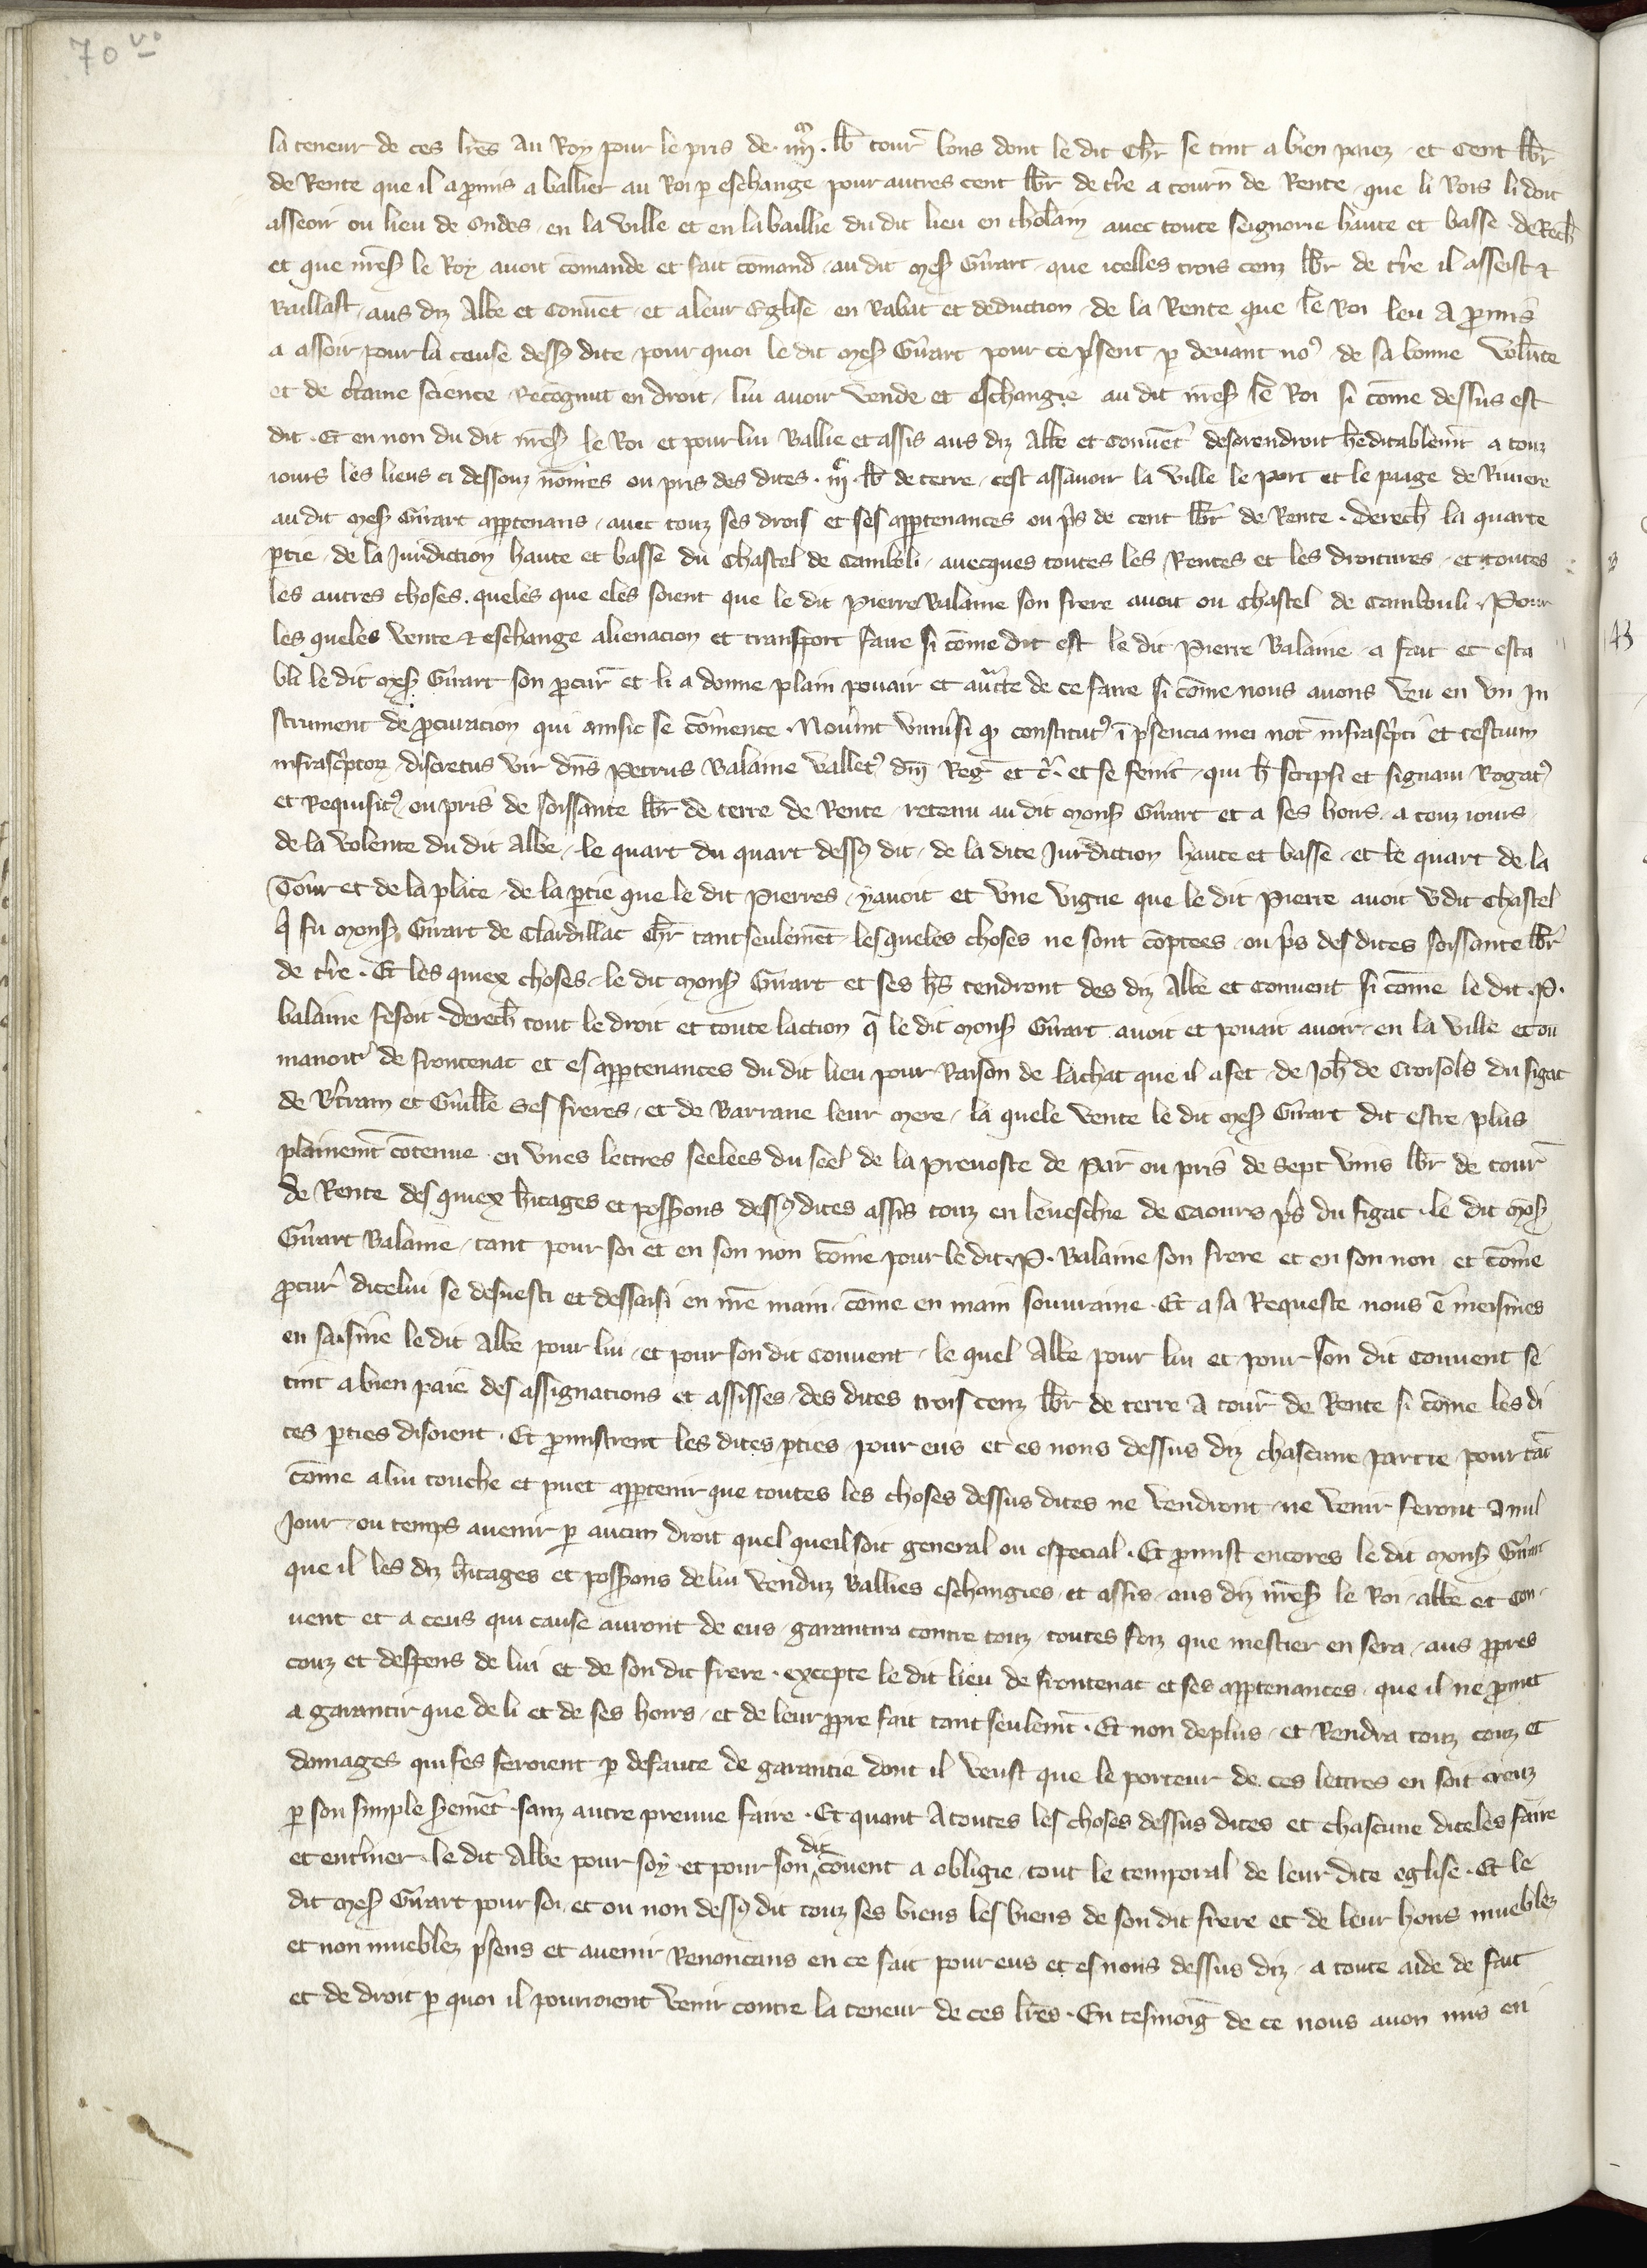 70 vo
la teneur de ces lr̄es au Roy pour le pris de . iiij.m lb tour̄ bons dont le dit Chr̄ se tint a bien paiez . et Cent lbr̄
de Rente que il a ꝓmis a baillier au Roi ꝑ eschange pour autres cent lbr̄ de tr̄e a tourn̄ de Rente . que li Rois li doit
asseoir ou lieu de Ondes . en la ville et en la baillie du dit lieu en tholain avec toute seignorie haute et basse . deRech̄
et que mr̄es le Roy avoit cōmande et fait cōmand̄ . au dit mes Gir̄art . que icelles trois cenz lbr̄ de tr̄e il asseist ⁊
baillast . aus diz Abbe et Convēt . et a leur Eglise . en Rabat et deduction . de la Rente que le Roi leu a ꝓmis
a assoir pour la cause dess⁹ dite . pour quoi le dit mes Gir̄art pour ce p̄sent ꝑ devant no⁹ . de sa bonne volūte
et de c̄taine science . Recognut en droit . lui avoir vendu et eschangie au dit mr̄es le Roi si cōme dessus est
dit . Et en non du dit mr̄es le Roi . et pour lui Baillie et assis aus diz Abbe et convēt desorendroit h̄editablem̄t a touz
iours les lieus ci dessouz nōmes ou pris des dites . iij.c lb de terre . cest assavoir la ville le port et le paage de Riviere
au dit mes Gir̄art aꝑtenans . avec touz ses drois et ses aꝑtenances ou p̄s de cent lbr̄ de Rente . Derech̄ la quarte
ꝑtie . de la Juridiction haute et basse du Chastel de Camboli . avecques toutes les Rentes et les droitures . et toutes
les autres choses . queles que eles soient que le dit Pierre Balaine son frere avoit ou Chastel de Cambouli . Pour
les queles vente ⁊ eschange alienacion et transport faire si cōme dit est le dit Pierre Balaine . a fait et esta
bli le dit mes Gir̄art son ꝓcur̄ et li a donne plain povair et auc̄te de ce faire si cōme nous avons veu en un In
strument de ꝓcuracion qui ainsic se cōmence . Nov̄int univ̄si qꝫ constitut⁹ ī p̄sencia mei not̄ infrasc̄pti et testium
infrasc̄ptor̄ . discretus vir dn̄s Petrus Balaine vallet⁹ dn̄i Reg̅ et c̄ . et se fenit . qui h̄ scripsi et signavi Rogat⁹
et Requisit⁹ ou pris de soissante lbr̄ de terre de Rente . retenu au dit mons Gir̄art et a ses hoirs . a touz iours
de la volente du dit Abbe . le quart du quart dess⁹ dit . de la dite Jurīdiction haute et basse . et le quart de la
Tour et de la place . de la ꝑtie que le dit Pierres . y avoit et une vigne que le dit Pierre avoit u dit Chastel
q̄ fu mons Gir̄art de Clardillac Chr̄ tant seulemēt . les queles choses ne sont cōptees . ou p̄s des dites soissante lbr̄
de tr̄e . Et les quiex choses . le dit mons Gir̄art et ses h̄s tendront des diz Abbe et convent si cōme le dit . P .
balaine fesoit . Derech̄ tout le droit et toute laction q̄ le dit mons Gir̄art avoit et povait avoir . en la ville et ou
manoir de frontenac et es aꝑtenances du dit lieu pour Raison de lachat que il a fet . de Joh̄ de Croisols du figac
de B̄tram et Guille ses freres . et de Barrane leur mere . la quele vente le dit mes Gir̄art dit estre plus
plainem̄t cōtenue . en unes lettres seelees du seel de la prevoste de Par̄ ou pris de sept vins lbr̄ de tour̄
de Rente des quiex h̄itages et possꝰions dess⁹ dites assis touz en leveschie de Caours p̄s du figac . le dit mes
Gir̄art Balaine . tant pour soi et en son non cōme pour le dit . P . Balaine son frere et en son non et cōme
ꝓcur̄ dicelui se desvesti et dessaisi en nr̄e main . cōme en main souvraine . Et a sa Requeste nous ē meismes
en saisine le dit Abbe pour lui . et pour son dit convent . le quel Abbe pour lui et pour son dit convent se
tint a bien paie des assignations et assisses . des dites trois cenz lbr̄ de terre a tour̄ de Rente si cōme les di
tes ꝑties disoient . Et ꝓmistrent les dites ꝑties . pour eus et es nons dessus diz chascune partie . pour tāt
cōme a lui touche et puet aꝑtenir que toutes les choses dessus dites ne vendront . ne venir feront a nul
Jour . ou temps avenir ꝑ aucun droit quel que il soit general ou especial . Et ꝓmist encores le dit mons Gir̄art
que il les diz h̄itages et possꝰions de lui venduz baillies eschangies . et assis . aus diz mr̄es le Roi . abbe et Con
vent et a ceus qui cause auront de eus . garantira contre touz . toutes foiz que mestier en sera . aus ꝓpres
couz et despens de lui et de son dit frere . excepte le dit lieu de frontenat et ses aꝑtenances . que il ne ꝓmet
a garantir que de li et de ses hoirs . et de leur ꝓpre fait tant seulem̄t . Et non de plus . et Rendra touz couz et
domages qui fes seroient ꝑ defaute de garantie dont il veust que le porteur de ces lettres en soit creuz
ꝑ son simple s̄emēt . sanz autre preuve faire . Et quant a toutes les choses dessus dites et chascune diceles faire
et entīner . le dit Abbe pour soy . et pour son dit cōvent a obligie . tout le temporal de leur dite eglise . Et le
dit mes Gir̄art pour soi . et ou non dess⁹ dit touz ses biens les biens de son dit frere et de leur hoirs muebles
et non muebles p̄sens et avenir Renoncans en ce fait pour eus et es nons dessus diz . a toute aide de fait
et de droit ꝑ quoi il pourroient venir contre la teneur de ces lr̄es . En tesmoig̅ de ce nous avon mis en